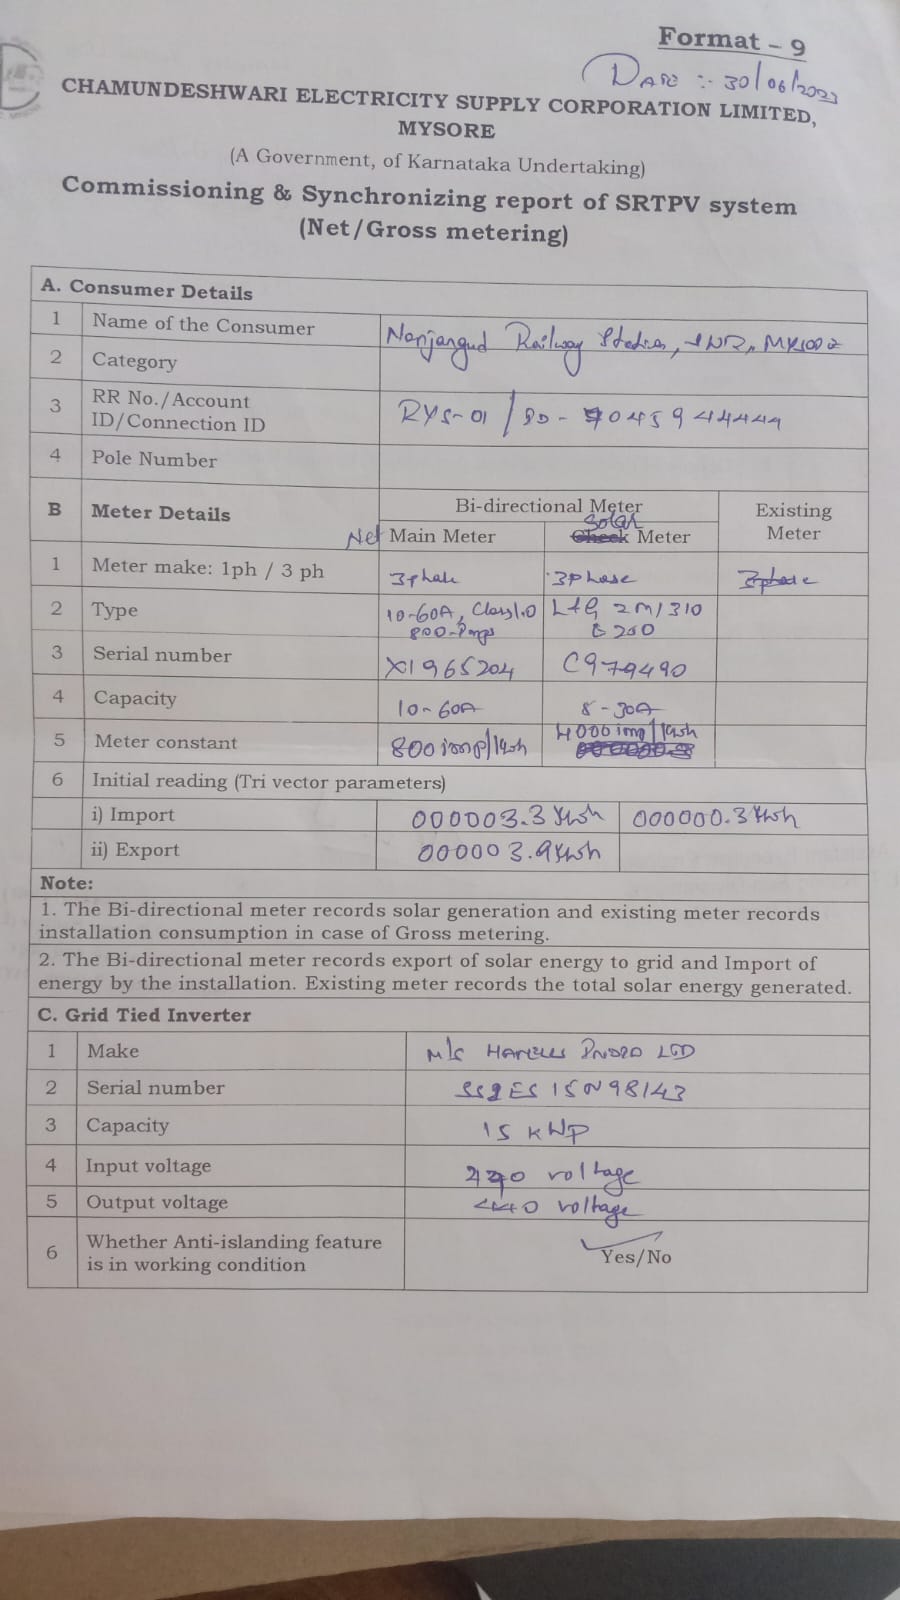 Format - 9
DATE :- 30/06/2023
CHAMUNDESHWARI ELECTRICITY SUPPLY CORPORATION LIMITED,
MYSORE
(A Government, of Karnataka Undertaking)
Commissioning & Synchronizing report of SRTPV system
(Net/Gross metering)
A. Consumer Details
1 Name of the Consumer Nanjangud Railway Station, SWR, Mysore
2 Category
3 RR No./Account ID/Connection ID RYS-01 /
4 Pole Number
B Meter Details Bi-directional Meter Existing Meter
Net Main Meter Solar Check Meter
1 Meter make: 1ph / 3 ph 3phase 3Phase 3phase
2 Type 10-60A, Class1.0 L+G, 2M/310
3 Serial number X1965204 C979490
4 Capacity 10-60A 8-30A
5 Meter constant 800imp/kwh 4000imp/kwh
6 Initial reading (Tri vector parameters)
i) Import 000003.3 kwh 000000.3 kwh
ii) Export 000003.9 kwh
Note:
1. The Bi-directional meter records solar generation and existing meter records
installation consumption in case of Gross metering.
2. The Bi-directional meter records export of solar energy to grid and Import of
energy by the installation. Existing meter records the total solar energy generated.
C. Grid Tied Inverter
1 Make M/s HAVELLS INDIA LTD
2 Serial number
3 Capacity 15 KWP
4 Input voltage voltage
5 Output voltage 440 voltage
6 Whether Anti-islanding feature is in working condition Yes/No